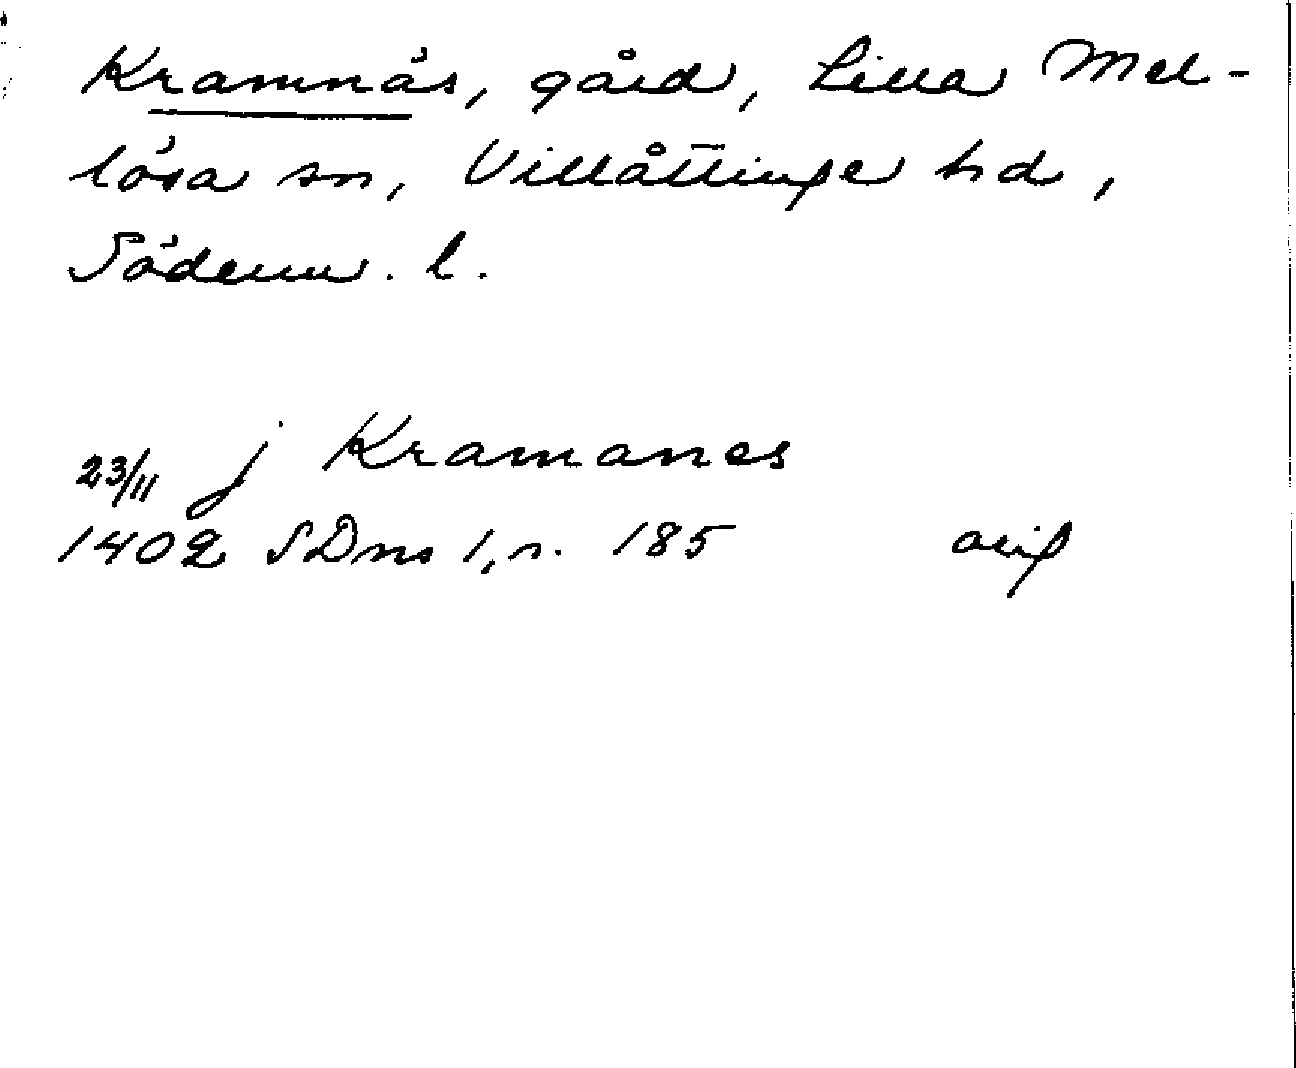 Kramnäs, gård, Lilla Mel-
lösa sn, Villåttinge hd,
Söderm. l.
23/11 j Kramanes
1402 SDns 1, s. 185 orig